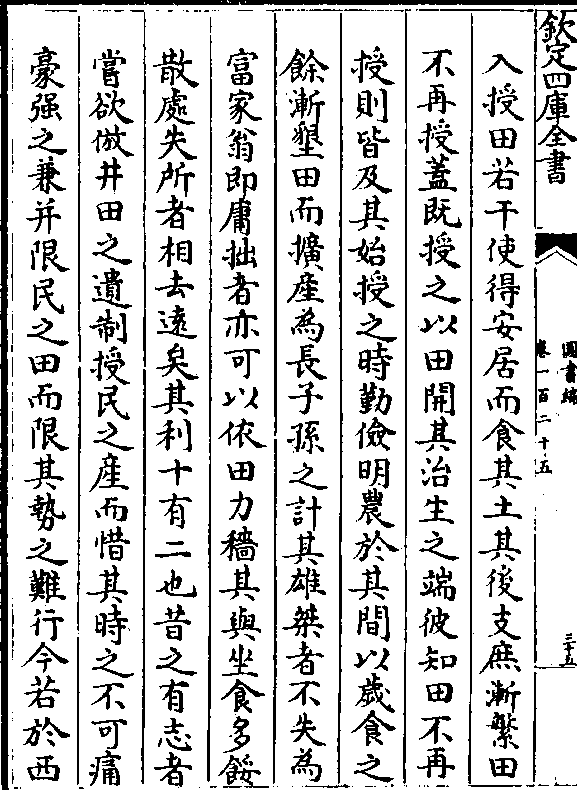 欽定四庫全書
圖書編
卷一百二十五
三十五
入授田若干使得安居而食其土其後支庶漸繁田
不再授蓋既授之以田開其治生之端彼知田不再
授則皆及其始授之時勤儉明農於其間以歲食之
餘漸墾田而擴產為長子孫之計其雄桀者不失為
富家翁即庸拙者亦可以依田力穡其與坐食多餒
散處失所者相去遠矣其利十有二也昔之有志者
嘗欲倣井田之遺制授民之產而惜其時之不可痛
豪强之兼并限民之田而限其勢之難行今若於西